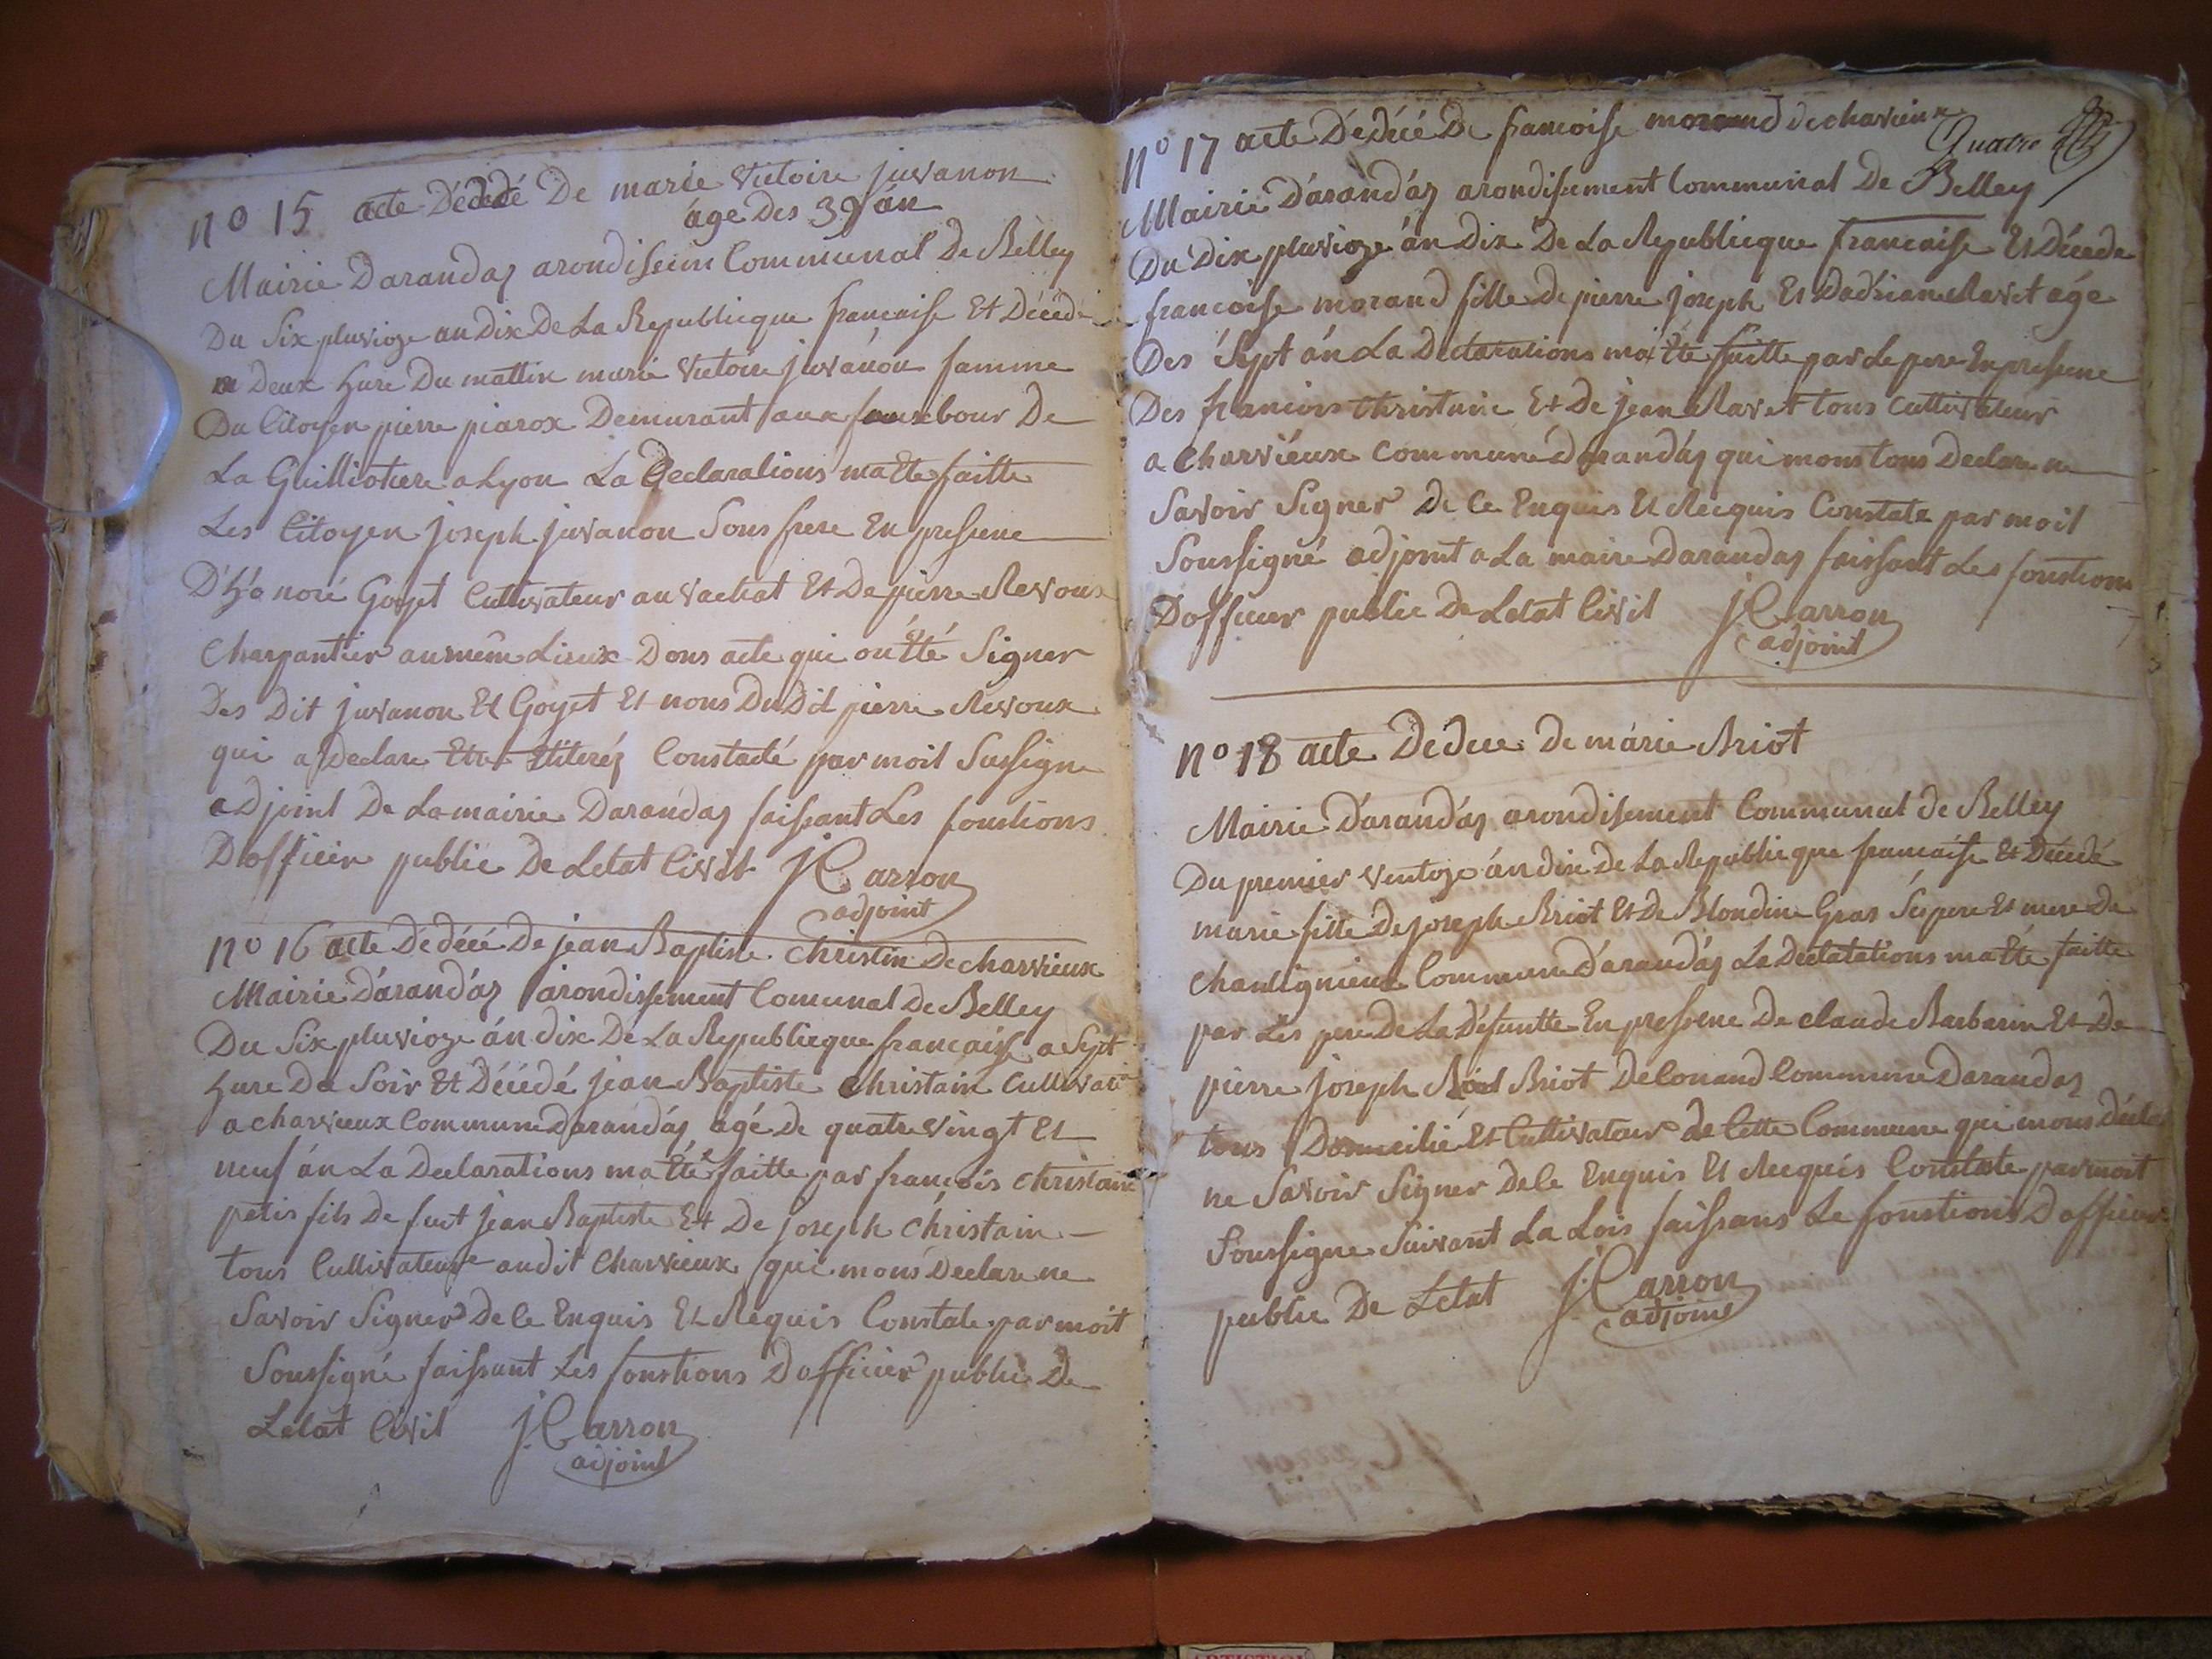 n° 15 acte Dédedé De marie Victoire juvanon
âge Des 39 án
Mairie Darandaz arondiseim Communal De Belley
Du Six pluvioze an Dix De La Republicque francaise Et Décédé
a Deux hure Du mattin marie Victoire juvánon famme
Du Citoyen pierre piarox Demurant aux fauxbour De
La Guilliotiere a Lyon La Declarations ma Ete faitte
Les Citoyen joseph juvanon Sons frere En pressene
D'hónoré Goyet Cultivateur au vachat Et De pierre Revoux
Charpantier au même Lieux Dons acte qui on été Signer
Des Dit juvanon Et Goyet Et nons Du Dit pierre Revoux
qui a Declare Etre Iliterés Constaté par moit Susigne
adjoint De La mairie Darandaz faissant Les fonstions
Dofficier publie De Letat Civil J Carron
adjoint
n° 16 acte Dédéce De jean Baptiste Christin De charvieux
Mairie Dárandáz arondissement Comunal De Belley
Du Six pluvioze án dix De La Republicque francaise a Sept
hure De Soir Et Décédé jean Baptiste Christain Cultivat
a charvieux Commune Darandáz agé De quatre vingt Et
neuf án La Declarations ma Été faitte par francois christain
petis fils De fut jean Baptiste Et De joseph christain
tous Cultivateur audit Charvieux qui mons Declare ne
Savoir Signer De Ce Enquis Et Requis Constate par moit
Soussigné faissant Les fonstions Dofficier publie De
Letat Civil J Carron
adjoint
n° 17 acte Dédécé De francoise morand De charvieux
Quatre
Mairie Dárandáz arondisement Communal De Belley
Du Dix pluvioze án Dix De La Republicque francaise Et Décede
francoise morand fille De pierre joseph Et Dadriane Ravet agé
Des Sept án La Declarations ma Été faitte par Le pere En pressene
Des francois christain Et De jean Ravet tous Cultivateur
a Charviéux Commune Darandáz qui mons tous Declare ne
Savoir Signer De Ce Enquis Et Recquis Constate par moit
Soussigné adjoint a La maire Darandaz faissant Les fonstions
Dofficier publie De Letat Civil J Carron
adjoint
n° 18 acte Dedece De márie Briot
Mairie Dárandáz arondisement Communal de Belley
Du premier ventoze án dix de La Republicque francaise Et Décedé
marie fille De joseph Briot Et De Blondine Gras Sés pere Et mere De
Commune Dárandáz La Declatations ma Été faitte
par Les pere De La Défuntte En pressene De claude Barbarin Et De
pierre joseph Briot De Conand Commune Darandaz
tous Domicilié Et Cultivateur de Cette Commune qui mons Décla
ne Savoir Signer De Ce Enquis Et Recquis Constate par moit
Soussigne Suivant La Lois faissans Le fonstions Dofficier
publie De Letat J Carron
adjoint